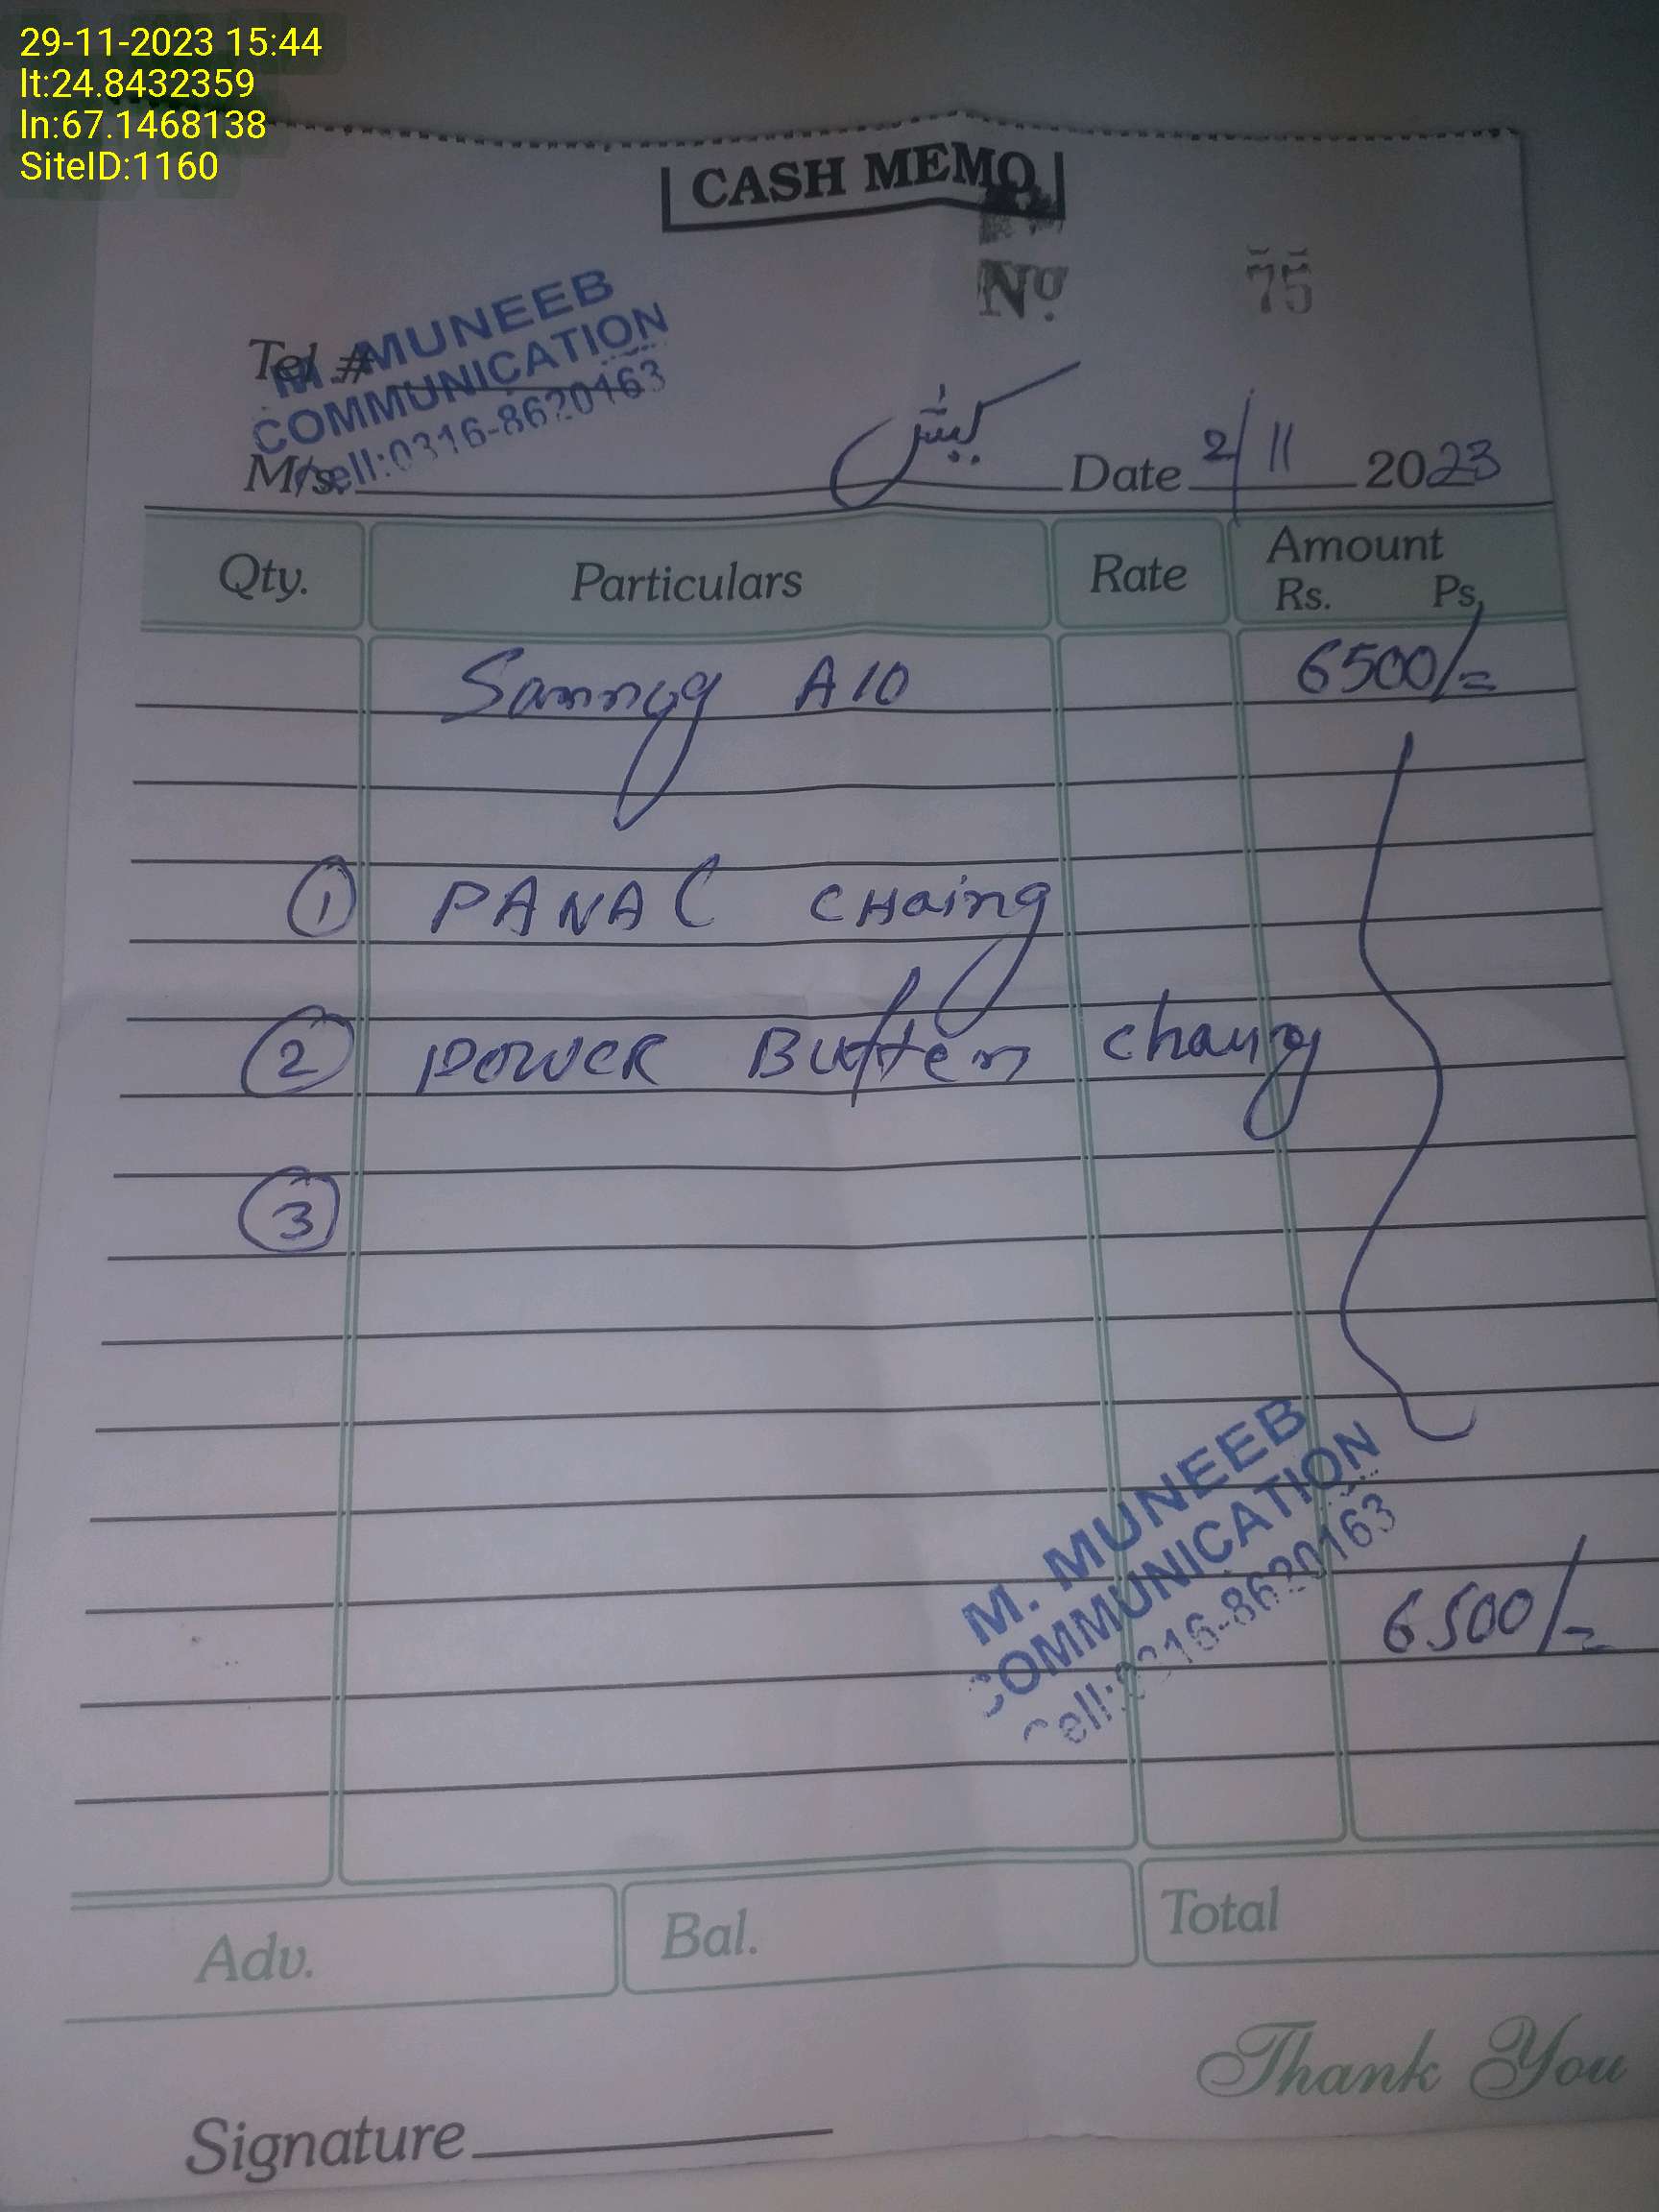 29-11-2023 15:44
lt:24.8432359
ln:67.1468138
SiteID:1160
CASH MEMO
Nº. 75
Tel #
M. MUNEEB
COMMUNICATION
Cell:0316-8620163
M/s. Date 2/11 2023
Qty. Particulars Rate Amount
Rs. Ps.
A10 6500/=
1 PANAL CHaing
2 POWER Butten
3
M. MUNEEB
COMMUNICATION
Cell:0316-8620163
6500/=
Adv. Bal. Total
Thank You
Signature